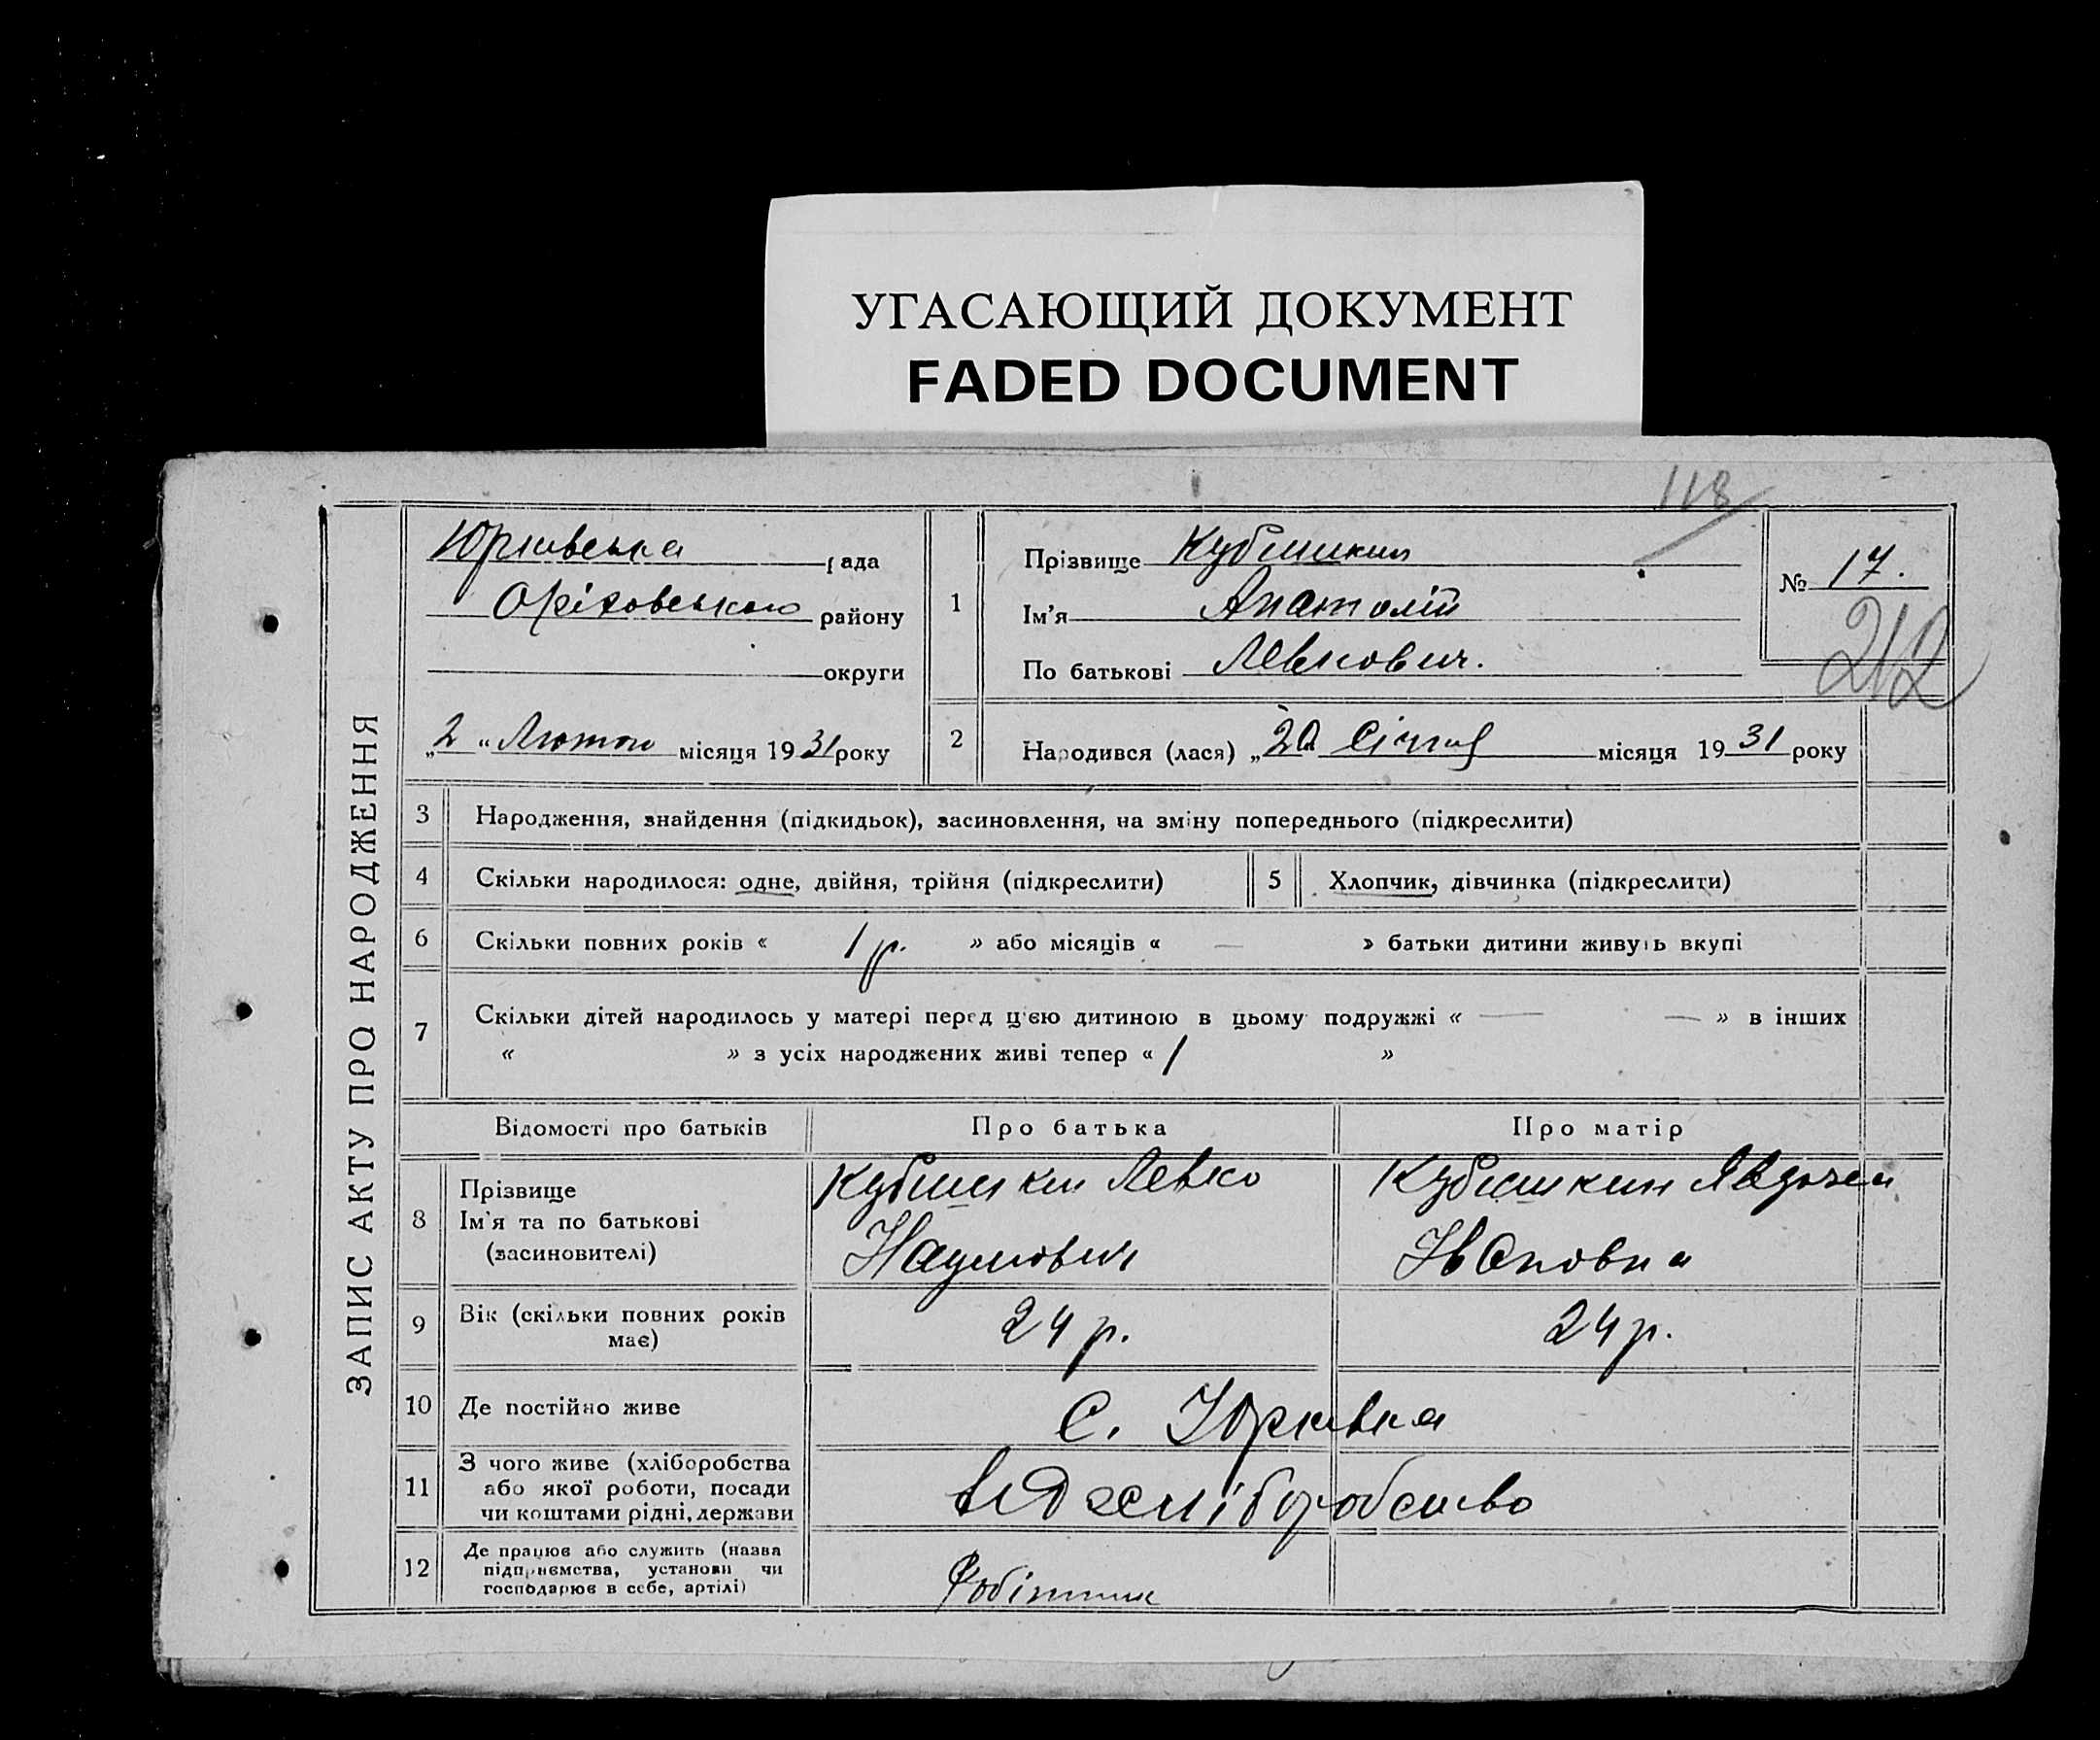 УГАСАЮЩИЙ ДОКУМЕНТ
FADED DOCUMENT
118
ЗАПИС АКТУ ПРО НАРОДЖЕННЯ
Юрківська рада
Оріховського району
округи
„2“ Лютого місяця 1931 року
1
Прізвище Кубишкин
Ім'я Анатолій
По батькові Левкович.
№ 17.
212
2
Народився (лася) „20 Січня місяця 1931 року
3 Народження, знайдення (підкидьок), засиновлення, на зміну попереднього (підкреслити)
4 Скільки народилося: одне, двійня, трійня (підкреслити)
5 Хлопчик, дівчинка (підкреслити)
6 Скільки повних років « 1 р. » або місяців « — » батьки дитини живуть вкупі
7 Скільки дітей народилось у матері перед цією дитиною в цьому подружжі « — — » в інших
« » з усіх народжених живі тепер « 1 »
Відомості про батьків Про батька Про матір
8 Прізвище
Ім'я та по батькові
(засиновителі)
Кубишкин Левко
Наумович
Кубишкин Явдокея
Івановна
9 Вік (скільки повних років
має)
24 р. 24 р.
10 Де постійно живе С. Юрківка
11 З чого живе (хліборобства
або якої роботи, посади
чи коштами рідні, держави
від хліборобство
12 Де працює або служить (назва
підприємства, установи чи
господарює в себе, артілі)
Робітник